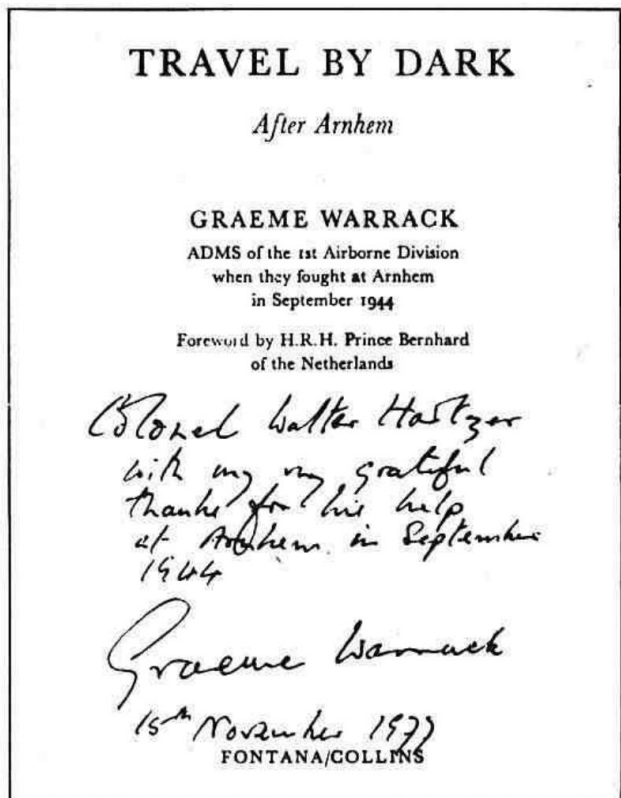 TRAVEL BY DARK
After Arnhem
GRAEME WARRACK
ADMS of the 1st Airborne Division
when they fought at Arnhem
in September 1944
Foreword by H.R.H. Prince Bernhard
of the Netherlands
Colonel Walter Hartzer
with my very grateful
thanks for his help
at Arnhem in September
1944
Graeme Warrack
15th November 1977
FONTANA/COLLINS